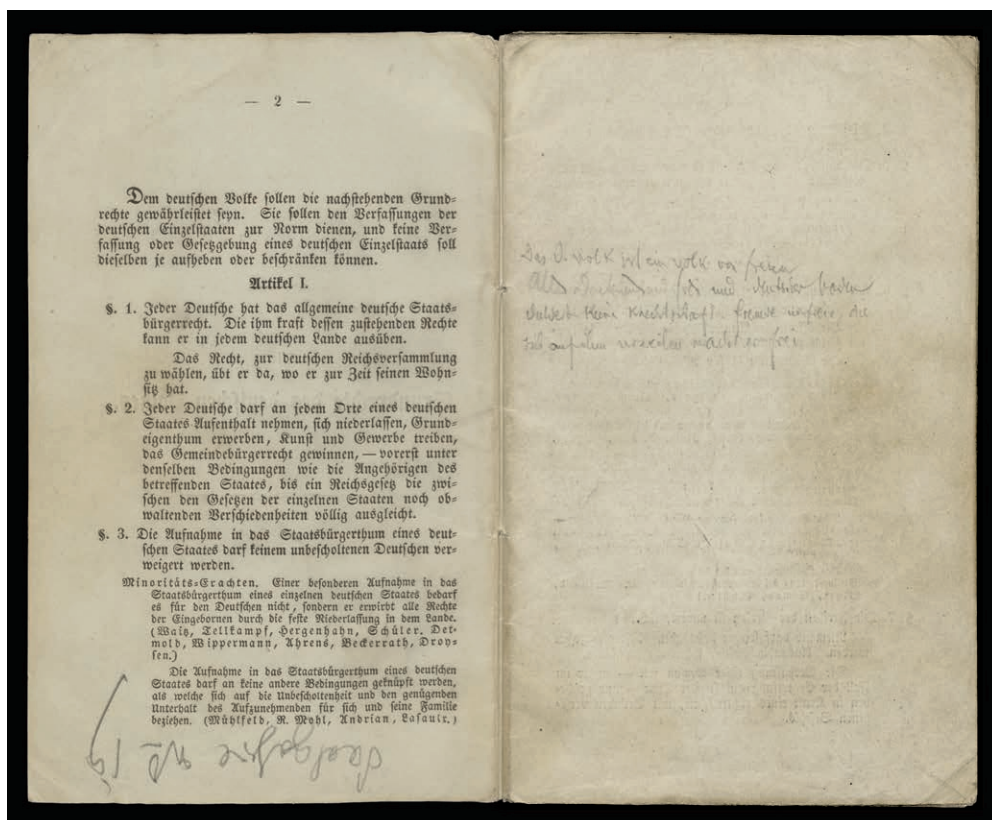 — 2 —
Dem deutschen Volke sollen die nachstehenden Grund-
rechte gewährleistet seyn. Sie sollen den Verfassungen der
deutschen Einzelstaaten zur Norm dienen, und keine Ver-
fassung oder Gesetzgebung eines deutschen Einzelstaats soll
dieselben je aufheben oder beschränken können.
Artikel I.
§. 1. Jeder Deutsche hat das allgemeine deutsche Staats-
bürgerrecht. Die ihm kraft dessen zustehenden Rechte
kann er in jedem deutschen Lande ausüben.
Das Recht, zur deutschen Reichsversammlung
zu wählen, übt er da, wo er zur Zeit seinen Wohn-
sitz hat.
§. 2. Jeder Deutsche darf an jedem Orte eines deutschen
Staates Aufenthalt nehmen, sich niederlassen, Grund-
eigenthum erwerben, Kunst und Gewerbe treiben,
das Gemeindebürgerrecht gewinnen, — vorerst unter
denselben Bedingungen wie die Angehörigen des
betreffenden Staates, bis ein Reichsgesetz die zwi-
schen den Gesetzen der einzelnen Staaten noch ob-
waltenden Verschiedenheiten völlig ausgleicht.
§. 3. Die Aufnahme in das Staatsbürgerthum eines deut-
schen Staates darf keinem unbescholtenen Deutschen ver-
weigert werden.
Minoritäts-Erachten. Einer besonderen Aufnahme in das
Staatsbürgerthum eines einzelnen deutschen Staates bedarf
es für den Deutschen nicht, sondern er erwirbt alle Rechte
der Eingebornen durch die feste Niederlassung in dem Lande.
(Waitz, Tellkampf, Hergenhahn, Schüler, Det-
mold, Wippermann, Ahrens, Beckerrath, Droy-
sen.)
Die Aufnahme in das Staatsbürgerthum eines deutschen
Staates darf an keine andere Bedingungen geknüpft werden,
als welche sich auf die Unbescholtenheit und den genügenden
Unterhalt des Aufzunehmenden für sich und seine Familie
beziehen. (Mühlfeld, R. Mohl, Andrian, Lasaulx.)
Das D. Volk ist ein Volk von freien
und deutscher Boden
duldet keine Knechtschaft. Fremde unfreie, die
auf ihm verweilen macht er frei